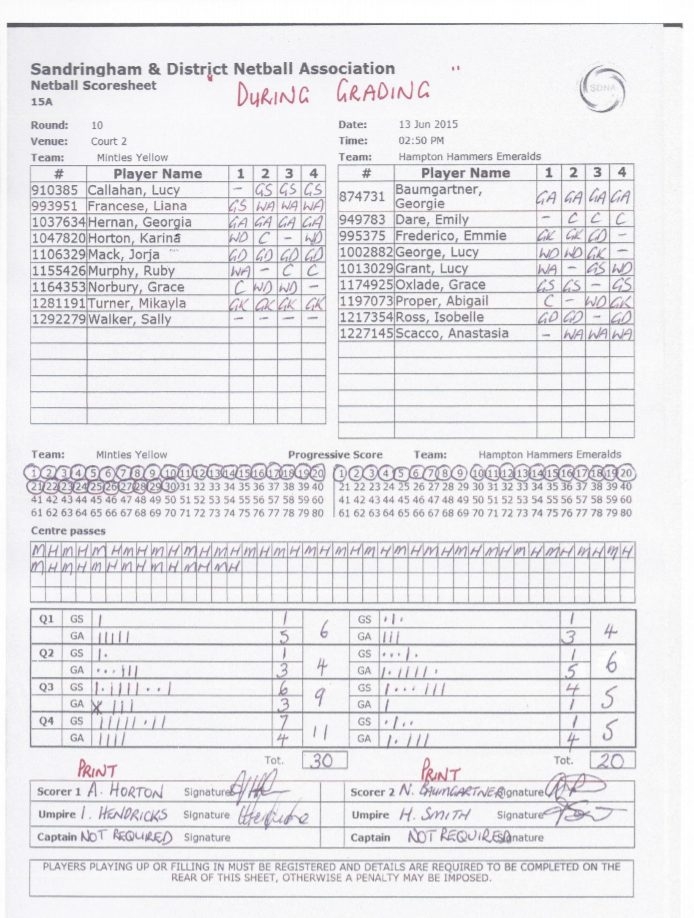 Sandringham & District Netball Association
Netball Scoresheet DURING GRADING SDNA
15A
Round: 10 Date: 13 Jun 2015
Venue: Court 2 Time: 02:50 PM
Team: Minties Yellow Team: Hampton Hammers Emeralds
# Player Name 1 2 3 4 # Player Name 1 2 3 4
910385 Callahan, Lucy - GS GS GS 874731 Baumgartner, Georgie GA GA GA GA
993951 Francese, Liana GS WA WA WA 949783 Dare, Emily - C C C
1037634 Hernan, Georgia GA GA GA GA 995375 Frederico, Emmie GK GK GD -
1047820 Horton, Karina WD C - WD 1002882 George, Lucy WD WD GK -
1106329 Mack, Jorja GD GD GD GD 1013029 Grant, Lucy WA - GS WD
1155426 Murphy, Ruby WA - C C 1174925 Oxlade, Grace GS GS - GS
1164353 Norbury, Grace C WD WD - 1197073 Proper, Abigail C - WD GK
1281191 Turner, Mikayla GK GK GK GK 1217354 Ross, Isobelle GD GD - GD
1292279 Walker, Sally - - - - 1227145 Scacco, Anastasia - WA WA WA
Team: Minties Yellow Progressive Score Team: Hampton Hammers Emeralds
1 2 3 4 5 6 7 8 9 10 11 12 13 14 15 16 17 18 19 20 1 2 3 4 5 6 7 8 9 10 11 12 13 14 15 16 17 18 19 20
21 22 23 24 25 26 27 28 29 30 31 32 33 34 35 36 37 38 39 40 21 22 23 24 25 26 27 28 29 30 31 32 33 34 35 36 37 38 39 40
41 42 43 44 45 46 47 48 49 50 51 52 53 54 55 56 57 58 59 60 41 42 43 44 45 46 47 48 49 50 51 52 53 54 55 56 57 58 59 60
61 62 63 64 65 66 67 68 69 70 71 72 73 74 75 76 77 78 79 80 61 62 63 64 65 66 67 68 69 70 71 72 73 74 75 76 77 78 79 80
Centre passes
M H M H M H M H M H M H M H M H M H M H M H M H M H M H M H M H M H M H M H M H
M H M H M H M H M H M H M H
Q1 GS 1 6 GS 1 4
GA 5 GA 3
Q2 GS 1 4 GS 1 6
GA 3 GA 5
Q3 GS 6 9 GS 4 5
GA 3 GA 1
Q4 GS 7 11 GS 1 5
GA 4 GA 4
Tot. 30 Tot. 20
PRINT PRINT
Scorer 1 A. HORTON Signature Scorer 2 N. BAUMGARTNER Signature
Umpire I. HENDRICKS Signature Umpire H. SMITH Signature
Captain NOT REQUIRED Signature Captain NOT REQUIRED Signature
PLAYERS PLAYING UP OR FILLING IN MUST BE REGISTERED AND DETAILS ARE REQUIRED TO BE COMPLETED ON THE
REAR OF THIS SHEET, OTHERWISE A PENALTY MAY BE IMPOSED.